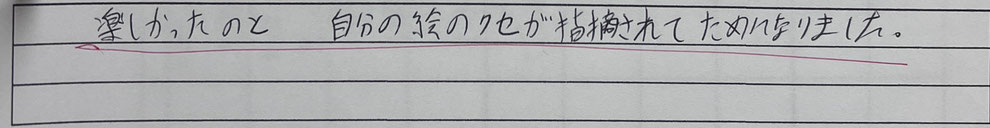 楽しかったのと　自分の絵のクセが指摘されてためになりました。